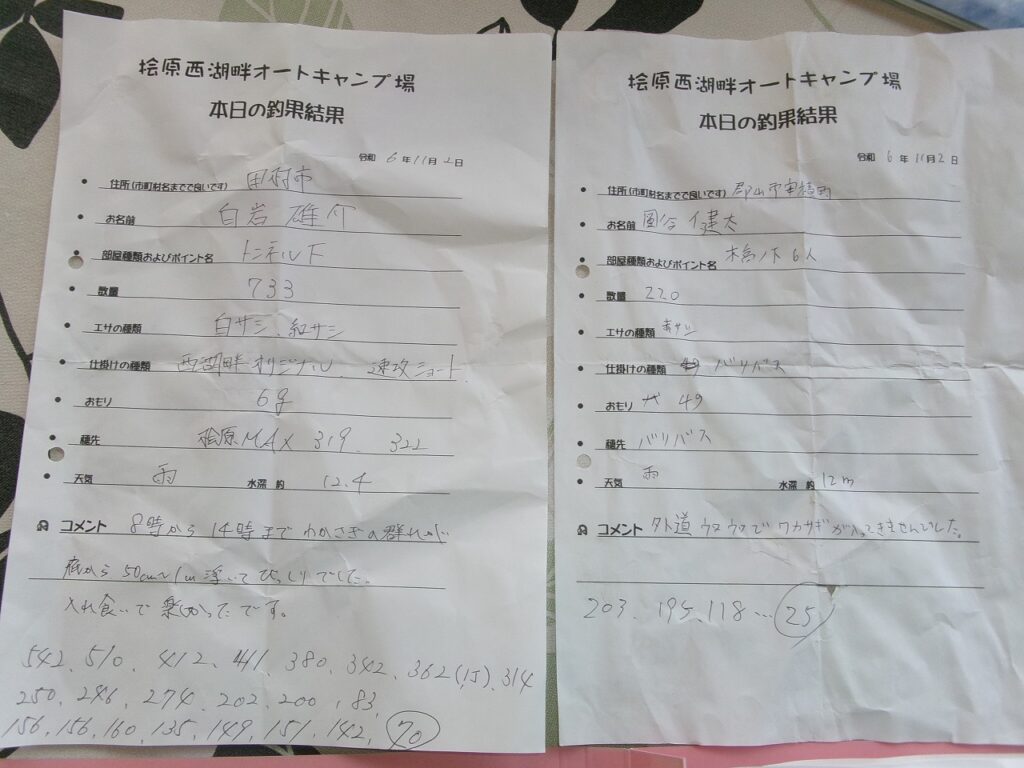 桧原西湖畔オートキャンプ場
本日の釣果結果
令和 6 年 11月 2 日
住所(市町村名までで良いです) 田村市
お名前 白岩 雄介
部屋種類およびポイント名 トンネル下
数量 733
エサの種類 白サシ、紅サシ
仕掛けの種類 西湖畔オリジナル、速攻ショート
おもり 6g
穂先 桧原MAX 319、322
天気 雨 水深 約 12.4
コメント 8時から14時までわかさぎの群れが
底から50cm~1m浮いてびっしりでした。
入れ食いで楽しかったです。
542、510、412、411、380、342、362(1J)、314
250、246、274、202、200、83、
156、156、160、135、149、151、142、70
桧原西湖畔オートキャンプ場
本日の釣果結果
令和 6 年 11月 2 日
住所(市町村名までで良いです) 郡山市
お名前 健太
部屋種類およびポイント名 橋ノ下 6人
数量 220
エサの種類
仕掛けの種類 バリバス
おもり 4g
穂先 バリバス
天気 雨 水深 約 12m
コメント 外道ウヌウヌでワカサギが入ってきませんでした。
203、195、118…25